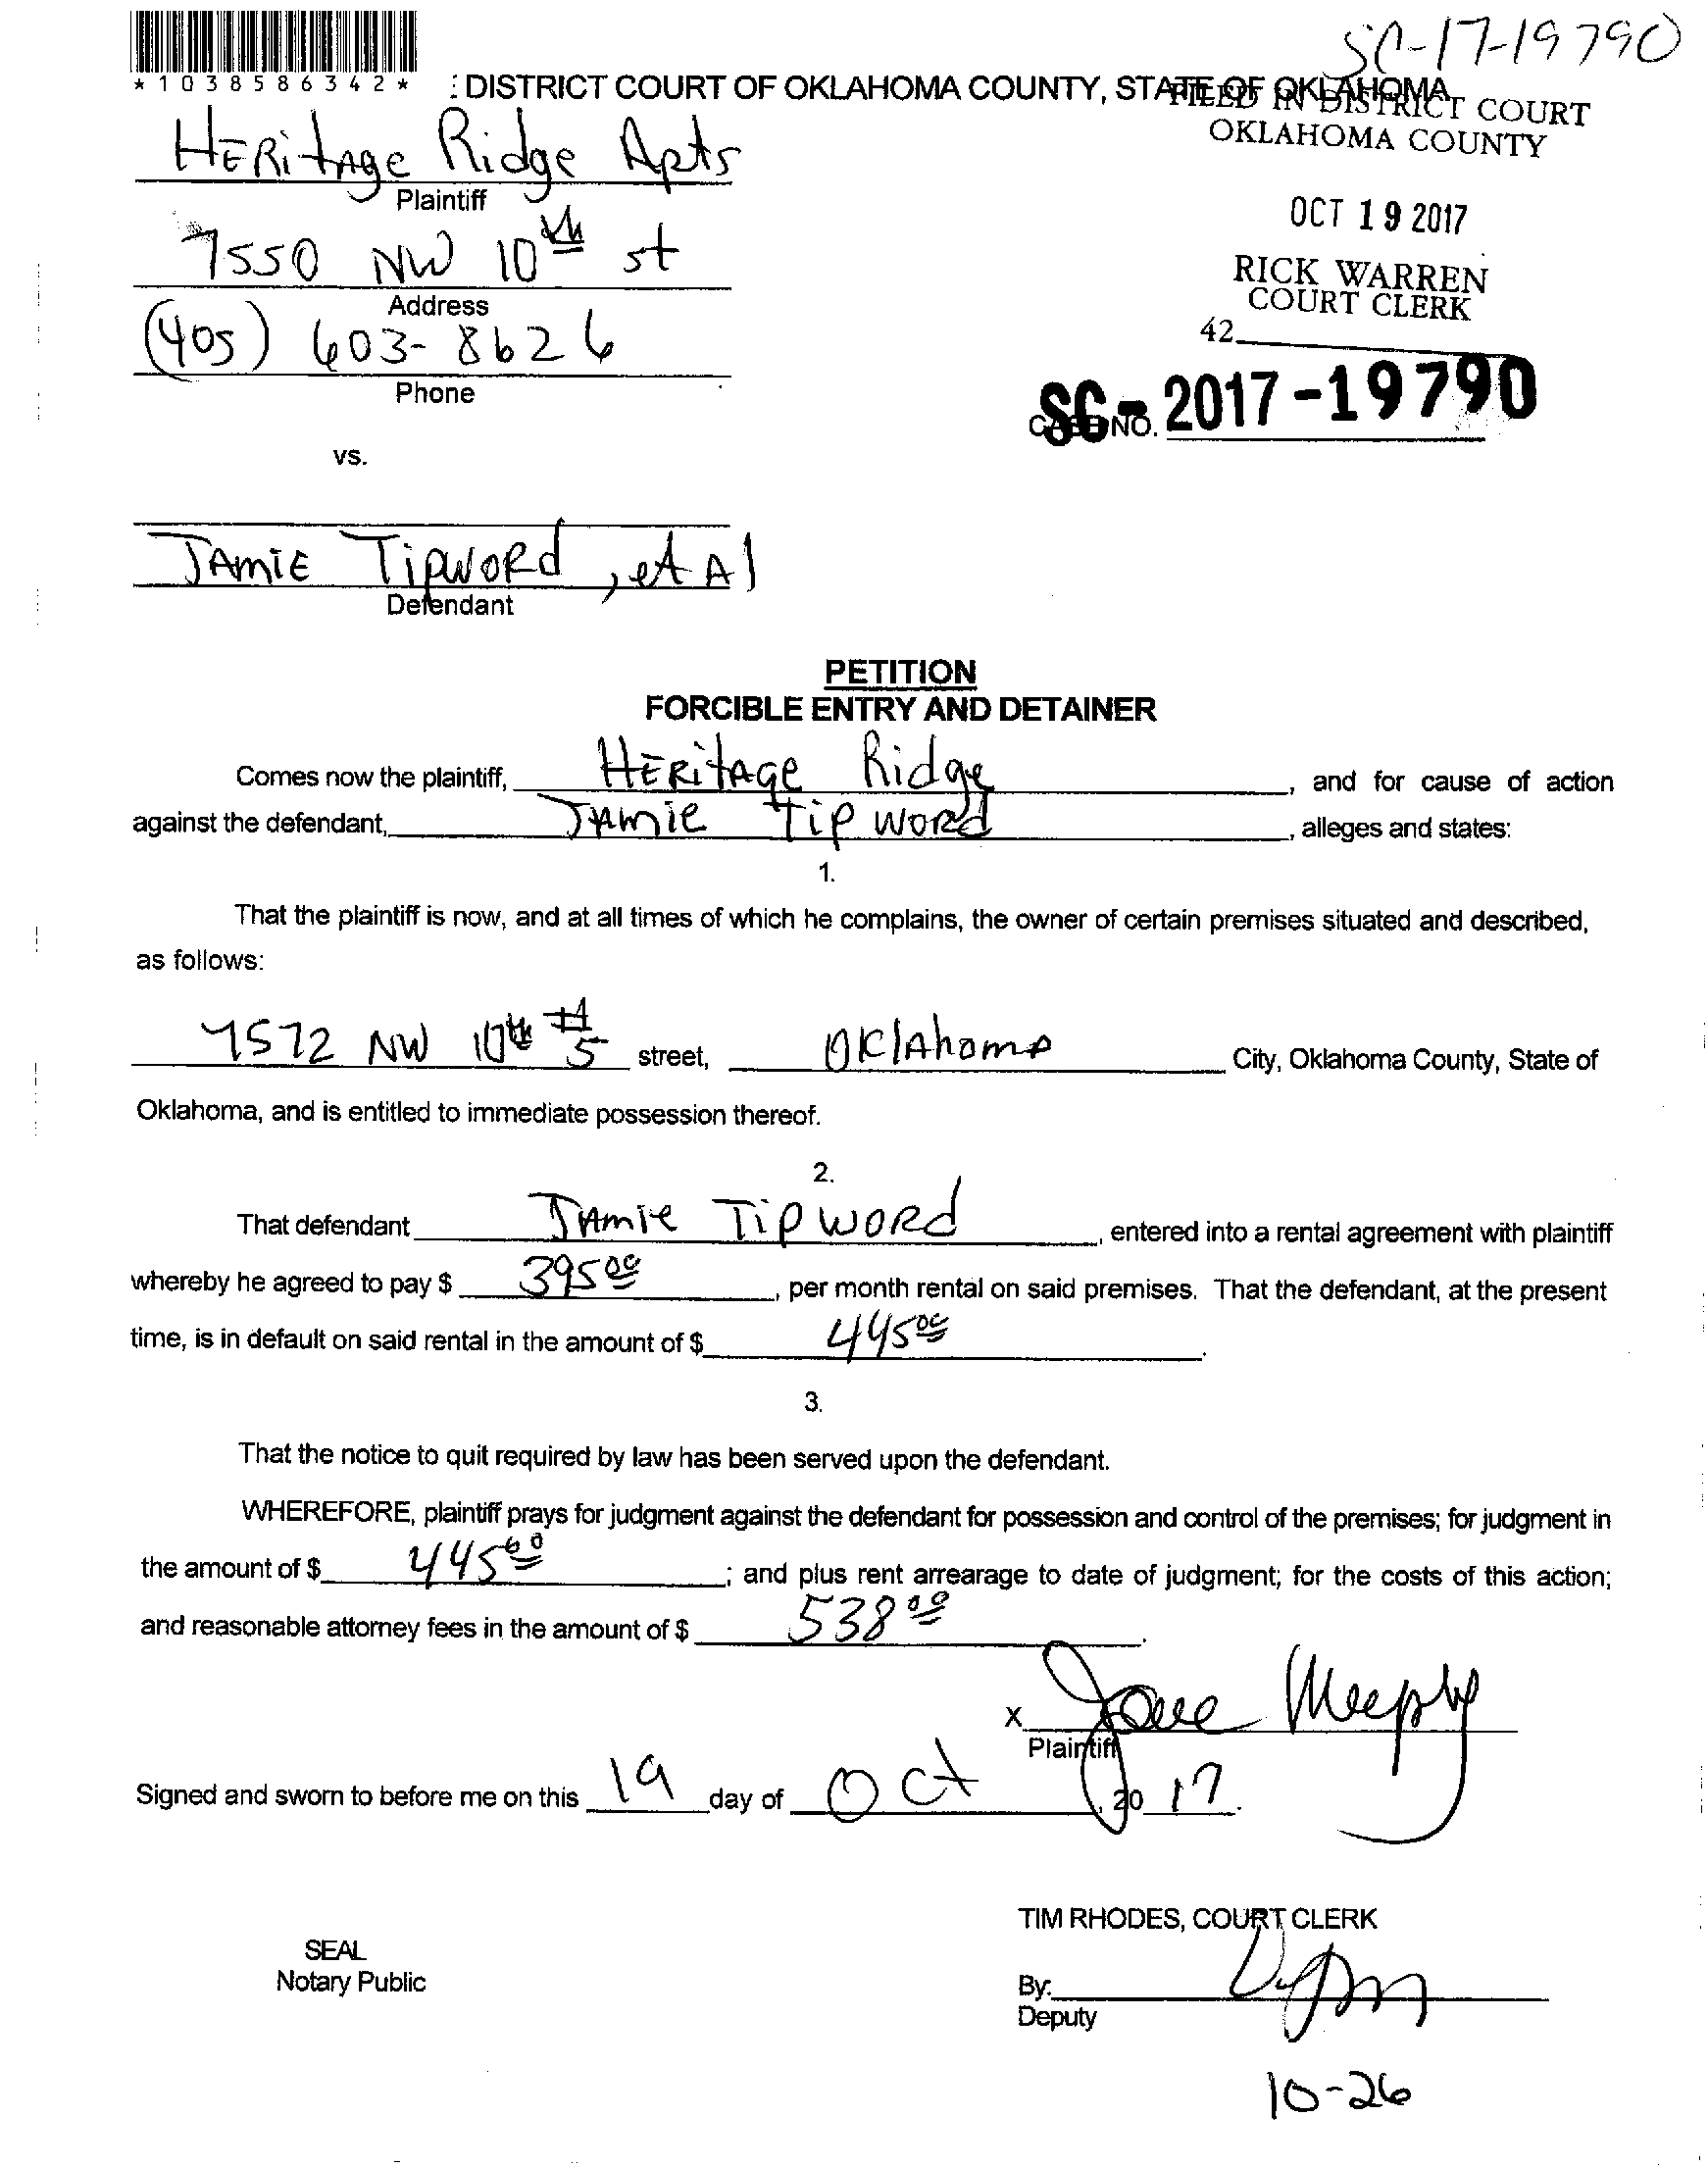 SC-17-19790
*1038586342*
: DISTRICT COURT OF OKLAHOMA COUNTY, STATE OF OKLAHOMA
FILED IN DISTRICT COURT
OKLAHOMA COUNTY
HERitAge Ridge Apts
Plaintiff
OCT 19 2017
7550 NW 10th st
Address
RICK WARREN
COURT CLERK
(405) 603-8626
42
Phone
CASE NO. SC-2017-19790
vs.
JAmiE TipwoRd, et Al
Defendant
PETITION
FORCIBLE ENTRY AND DETAINER
Comes now the plaintiff, HERitAge Ridge, and for cause of action
against the defendant, JAmie Tip woRd, alleges and states:
1.
That the plaintiff is now, and at all times of which he complains, the owner of certain premises situated and described,
as follows:
7572 NW 10th #5 street, OKlAhomA City, Oklahoma County, State of
Oklahoma, and is entitled to immediate possession thereof.
2.
That defendant JAmie Tip woRd, entered into a rental agreement with plaintiff
whereby he agreed to pay $ 395 00, per month rental on said premises. That the defendant, at the present
time, is in default on said rental in the amount of $ 445 00.
3.
That the notice to quit required by law has been served upon the defendant.
WHEREFORE, plaintiff prays for judgment against the defendant for possession and control of the premises; for judgment in
the amount of $ 445 00; and plus rent arrearage to date of judgment; for the costs of this action;
and reasonable attorney fees in the amount of $ 538 00.
X
Plaintiff
Signed and sworn to before me on this 19 day of Oct, 20 17.
TIM RHODES, COURT CLERK
SEAL
Notary Public
By:
Deputy
10-26